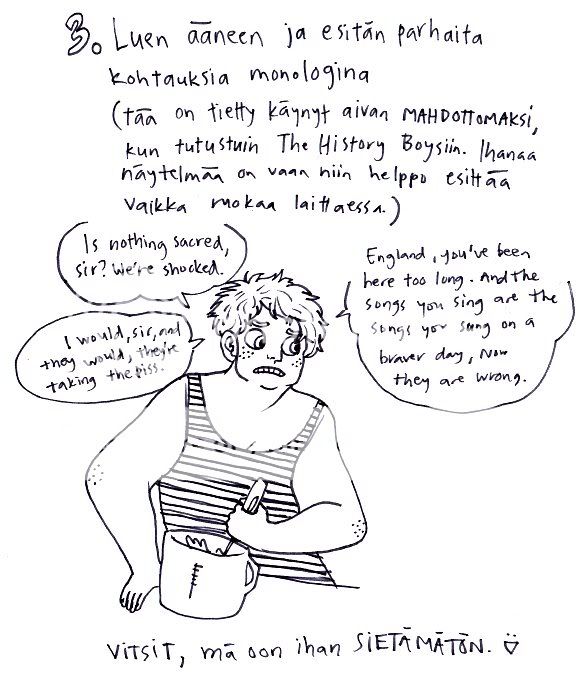 3. Luen ääneen ja esitän parhaita
kohtauksia monologina
(tää on tietty käynyt aivan MAHDOTTOMAKSI,
kun tutustuin The History Boysiin. Ihanaa
näytelmää on vaan niin helppo esittää
vaikka ruokaa laittaessa.)
Is nothing sacred,
sir? We're shocked.
I would, sir, and
they would, they're
taking the piss.
England, you've been
here too long. And the
songs you sing are the
songs you sung on a
braver day, Now
they are wrong.
VITSIT, mä oon ihan SIETÄMÄTÖN.